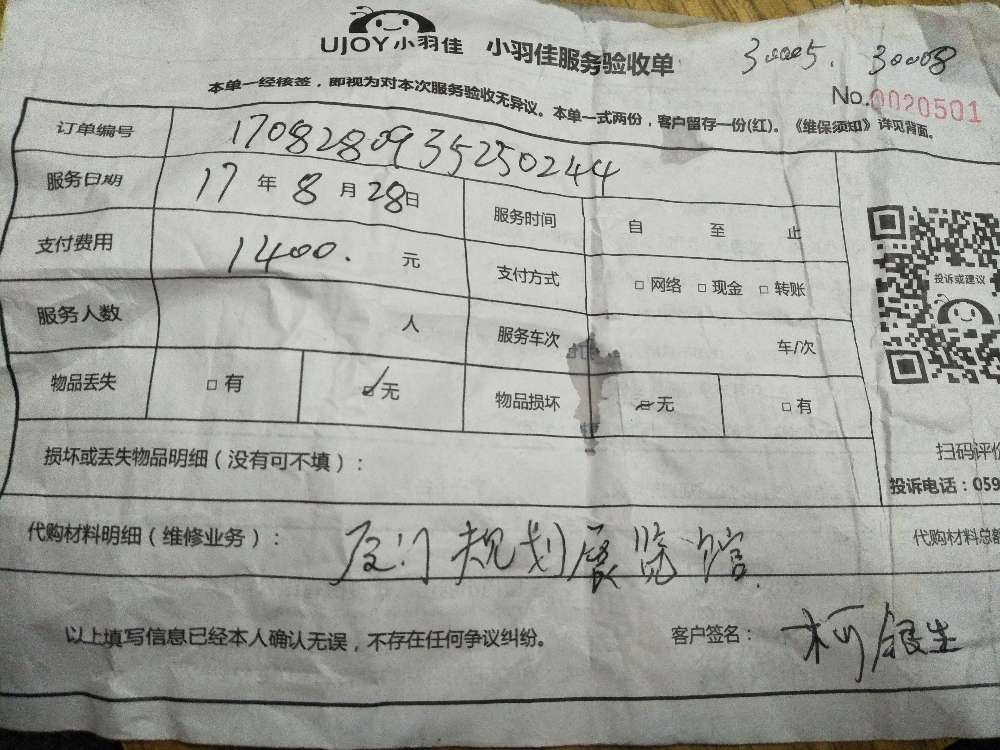 UJOY小羽佳 小羽佳服务验收单 30005. 30008
No.0020501
本单一经核签，即视为对本次服务验收无异议。本单一式两份，客户留存一份(红)。《维保须知》详见背面。
订单编号 1708280935250244
服务日期 17 年 8 月 28 日 服务时间 自 至 止
支付费用 1400. 元 支付方式 □ 网络 □ 现金 □ 转账
投诉或建议
服务人数 人 服务车次 车/次
物品丢失 □ 有 ☑ 无 物品损坏 ☑ 无 □ 有
扫码评价
损坏或丢失物品明细（没有可不填）：
投诉电话：059
代购材料明细（维修业务）： 厦门规划展览馆. 代购材料总额
以上填写信息已经本人确认无误，不存在任何争议纠纷。 客户签名：柯银生